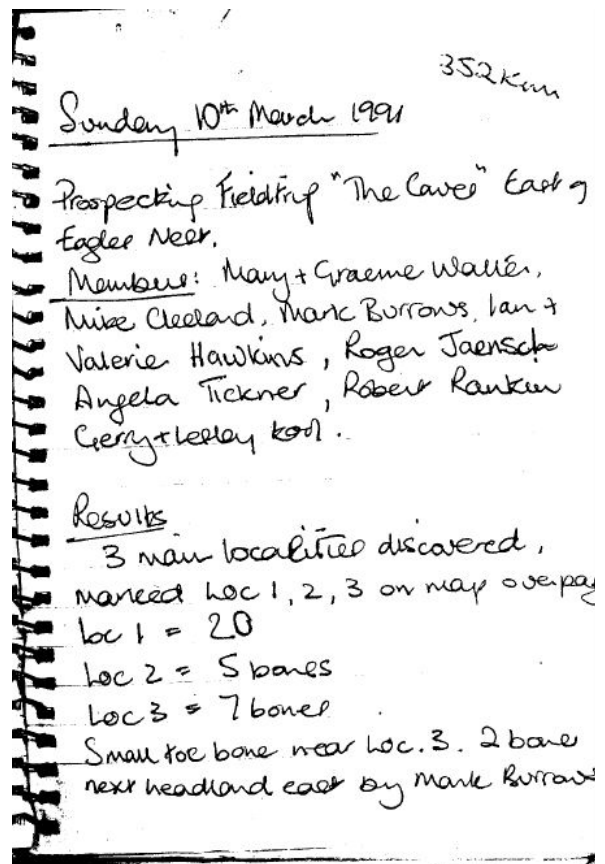 352km
Sunday 10th March 1991
Prospecting Fieldtrip "The Caves" East of
Eagles Nest.
Members: Mary + Graeme Walter,
Mike Cleeland, Mark Burrows, Ian +
Valerie Hawkins, Roger Jaensch
Angela Tickner, Robert Rankin
Gerry + Lesley Kool.
Results
3 main localities discovered,
marked Loc 1, 2, 3 on map overpag
Loc 1 = 20
Loc 2 = 5 bones
Loc 3 = 7 bones.
Small toe bone near Loc. 3. 2 bone
next headland east by Mark Burrows